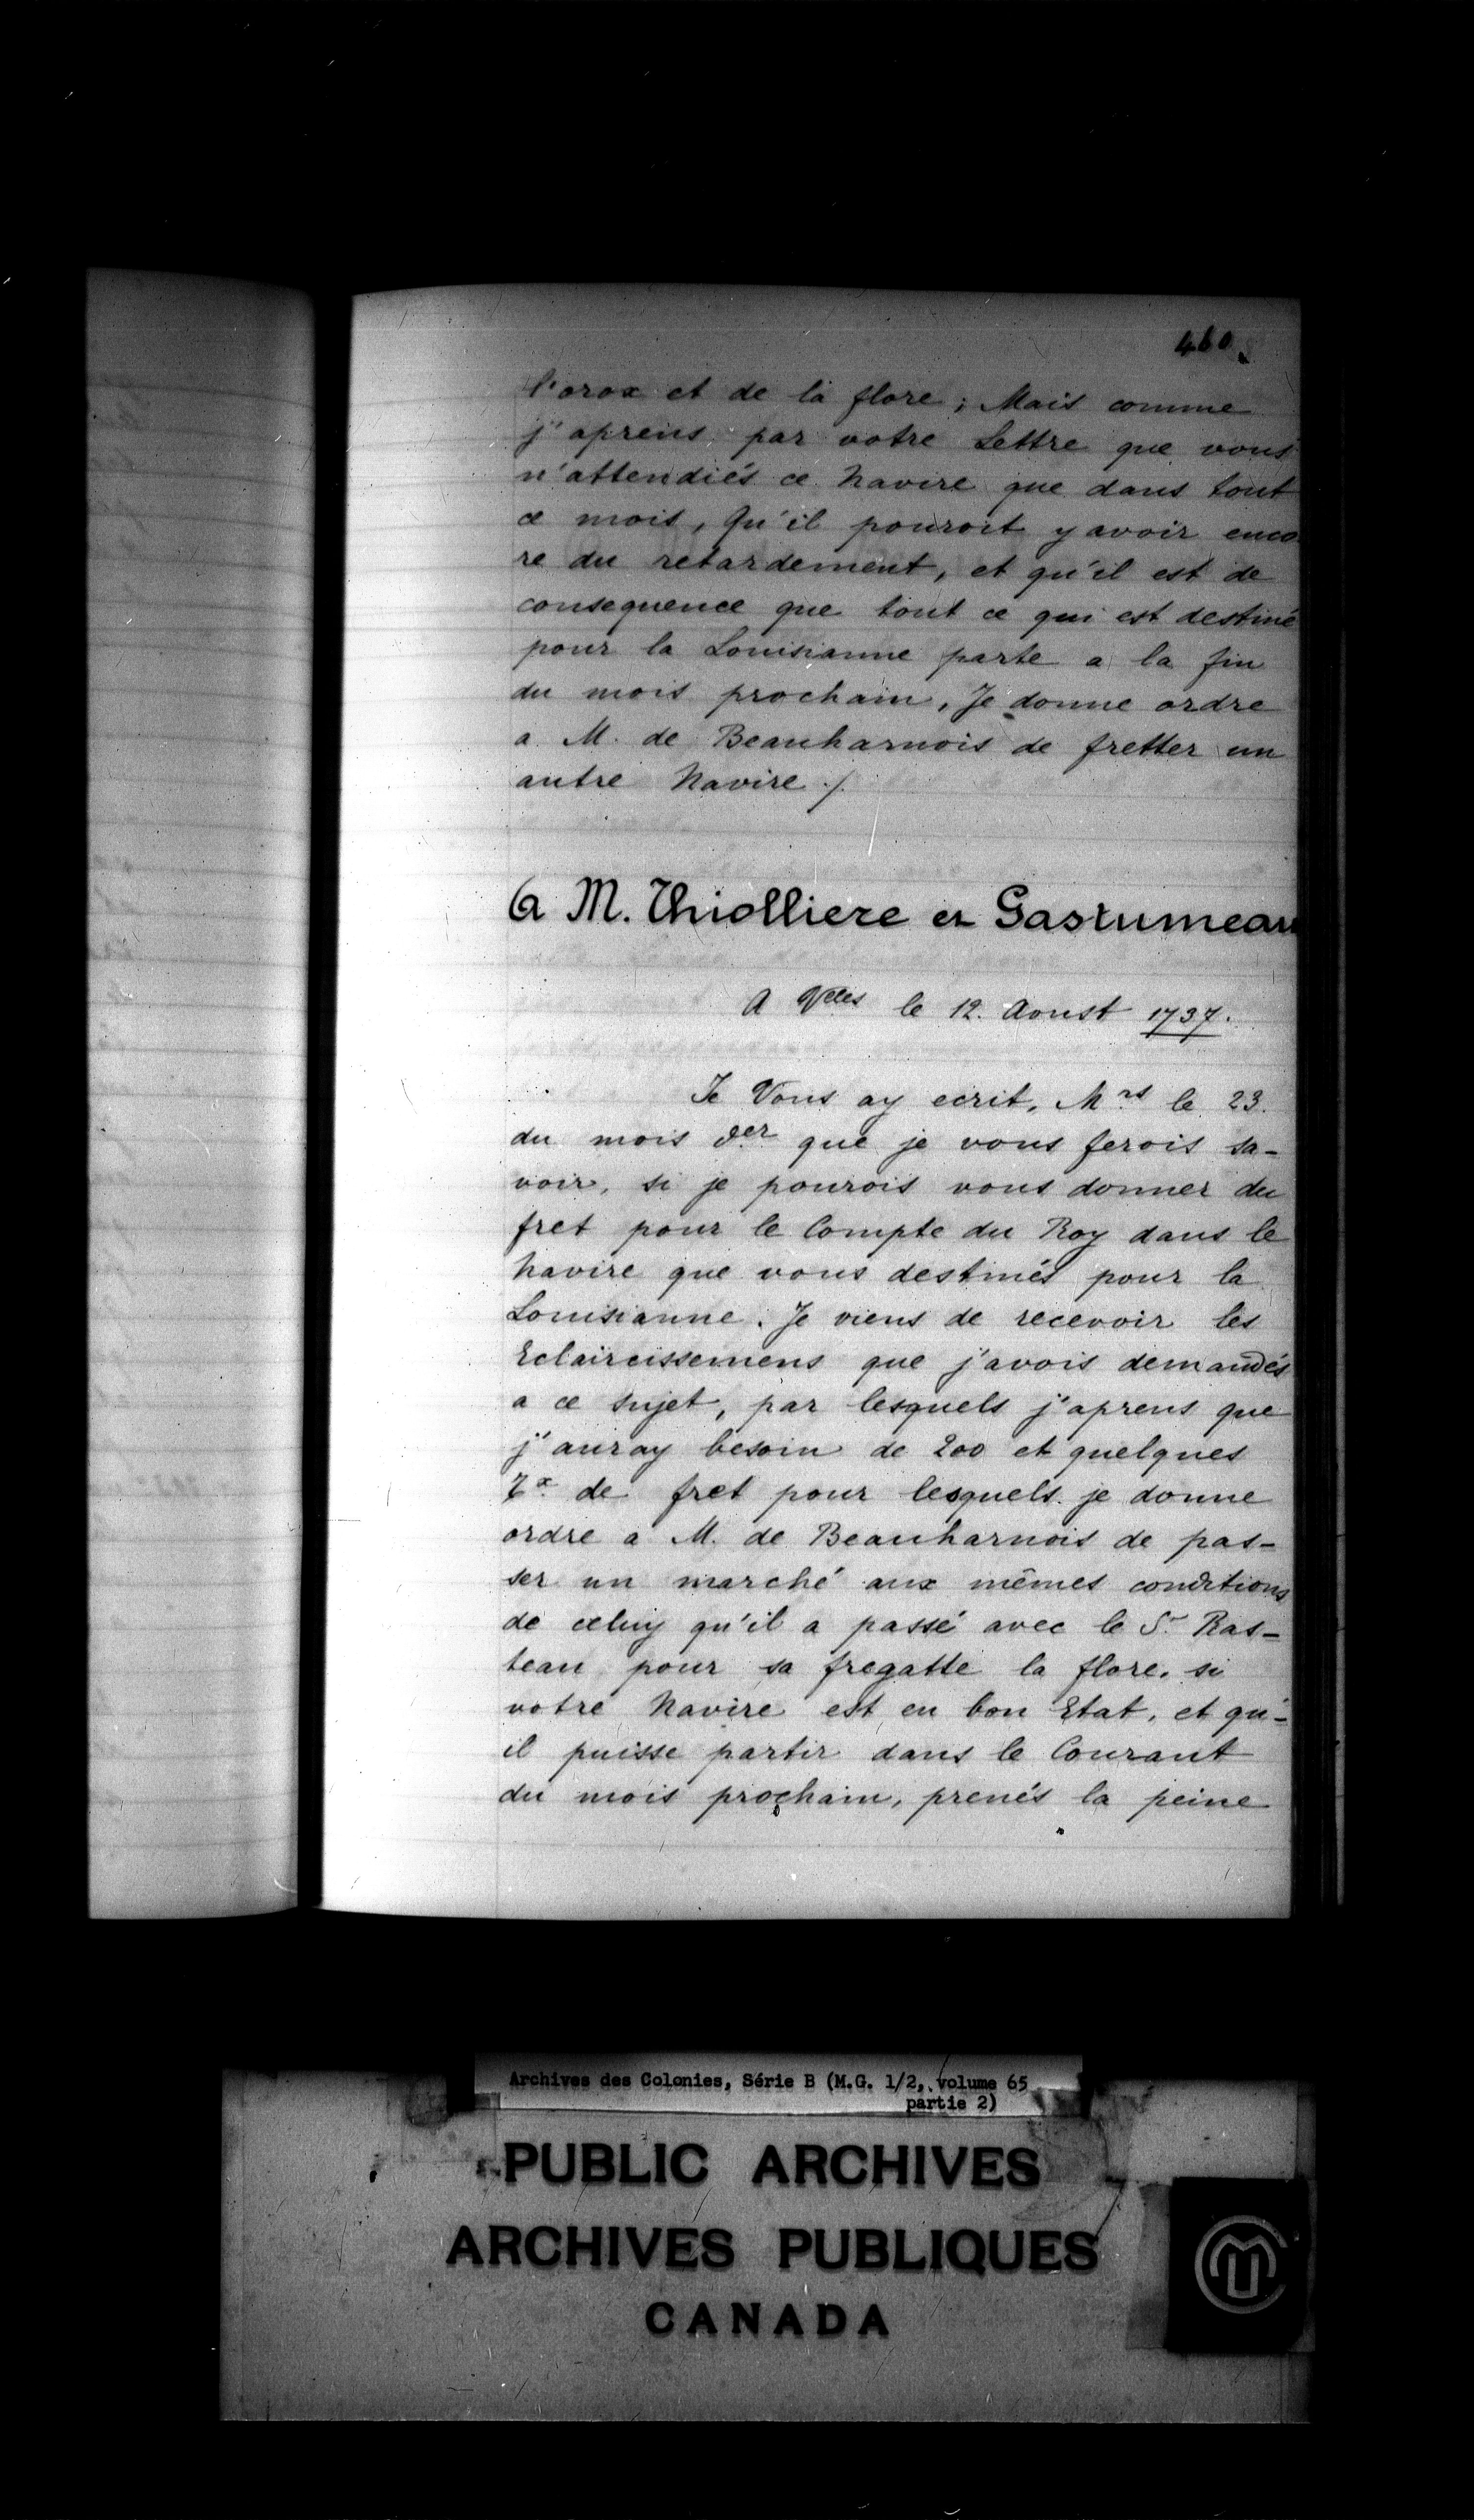 460
l'orox et de la flore ; Mais comme
j'aprens par votre Lettre que vous
n'attendiés ce Navire que dans tout
ce mois, Qu'il pouroit y avoir enco
re du retardement, et qu'il est de
consequence que tout ce qui est destiné
pour la Louisianne parte a la fin
du mois prochain, Je donne ordre
a M. de Beauharnois de fretter un
autre Navire ./.
A M. Thiolliere et Gastumeau
A Vlles le 12. Aoust 1737.
Je Vous ay ecrit, Mrs le 23.
du mois der que je vous ferois sa-
voir, si je pourois vous donner du
fret pour le Compte du Roy dans le
Navire que vous destinés pour la
Louisianne. Je viens de recevoir les
Eclaircissemens que j'avois demandés
a ce sujet, par lesquels j'aprens que
j'auray besoin de 200 et quelques
Tx de fret pour lesquels je donne
ordre a M. de Beauharnois de pas-
ser un marché aux mêmes conditions
de celuy qu'il a passé avec le Sr Ras-
teau pour sa fregatte la flore. si
votre Navire est en bon Etat, et qu'-
il puisse partir dans le Courant
du mois prochain, prenés la peine
Archives des Colonies, Série B (M.G. 1/2, volume 65
partie 2)
PUBLIC ARCHIVES
ARCHIVES PUBLIQUES
CANADA